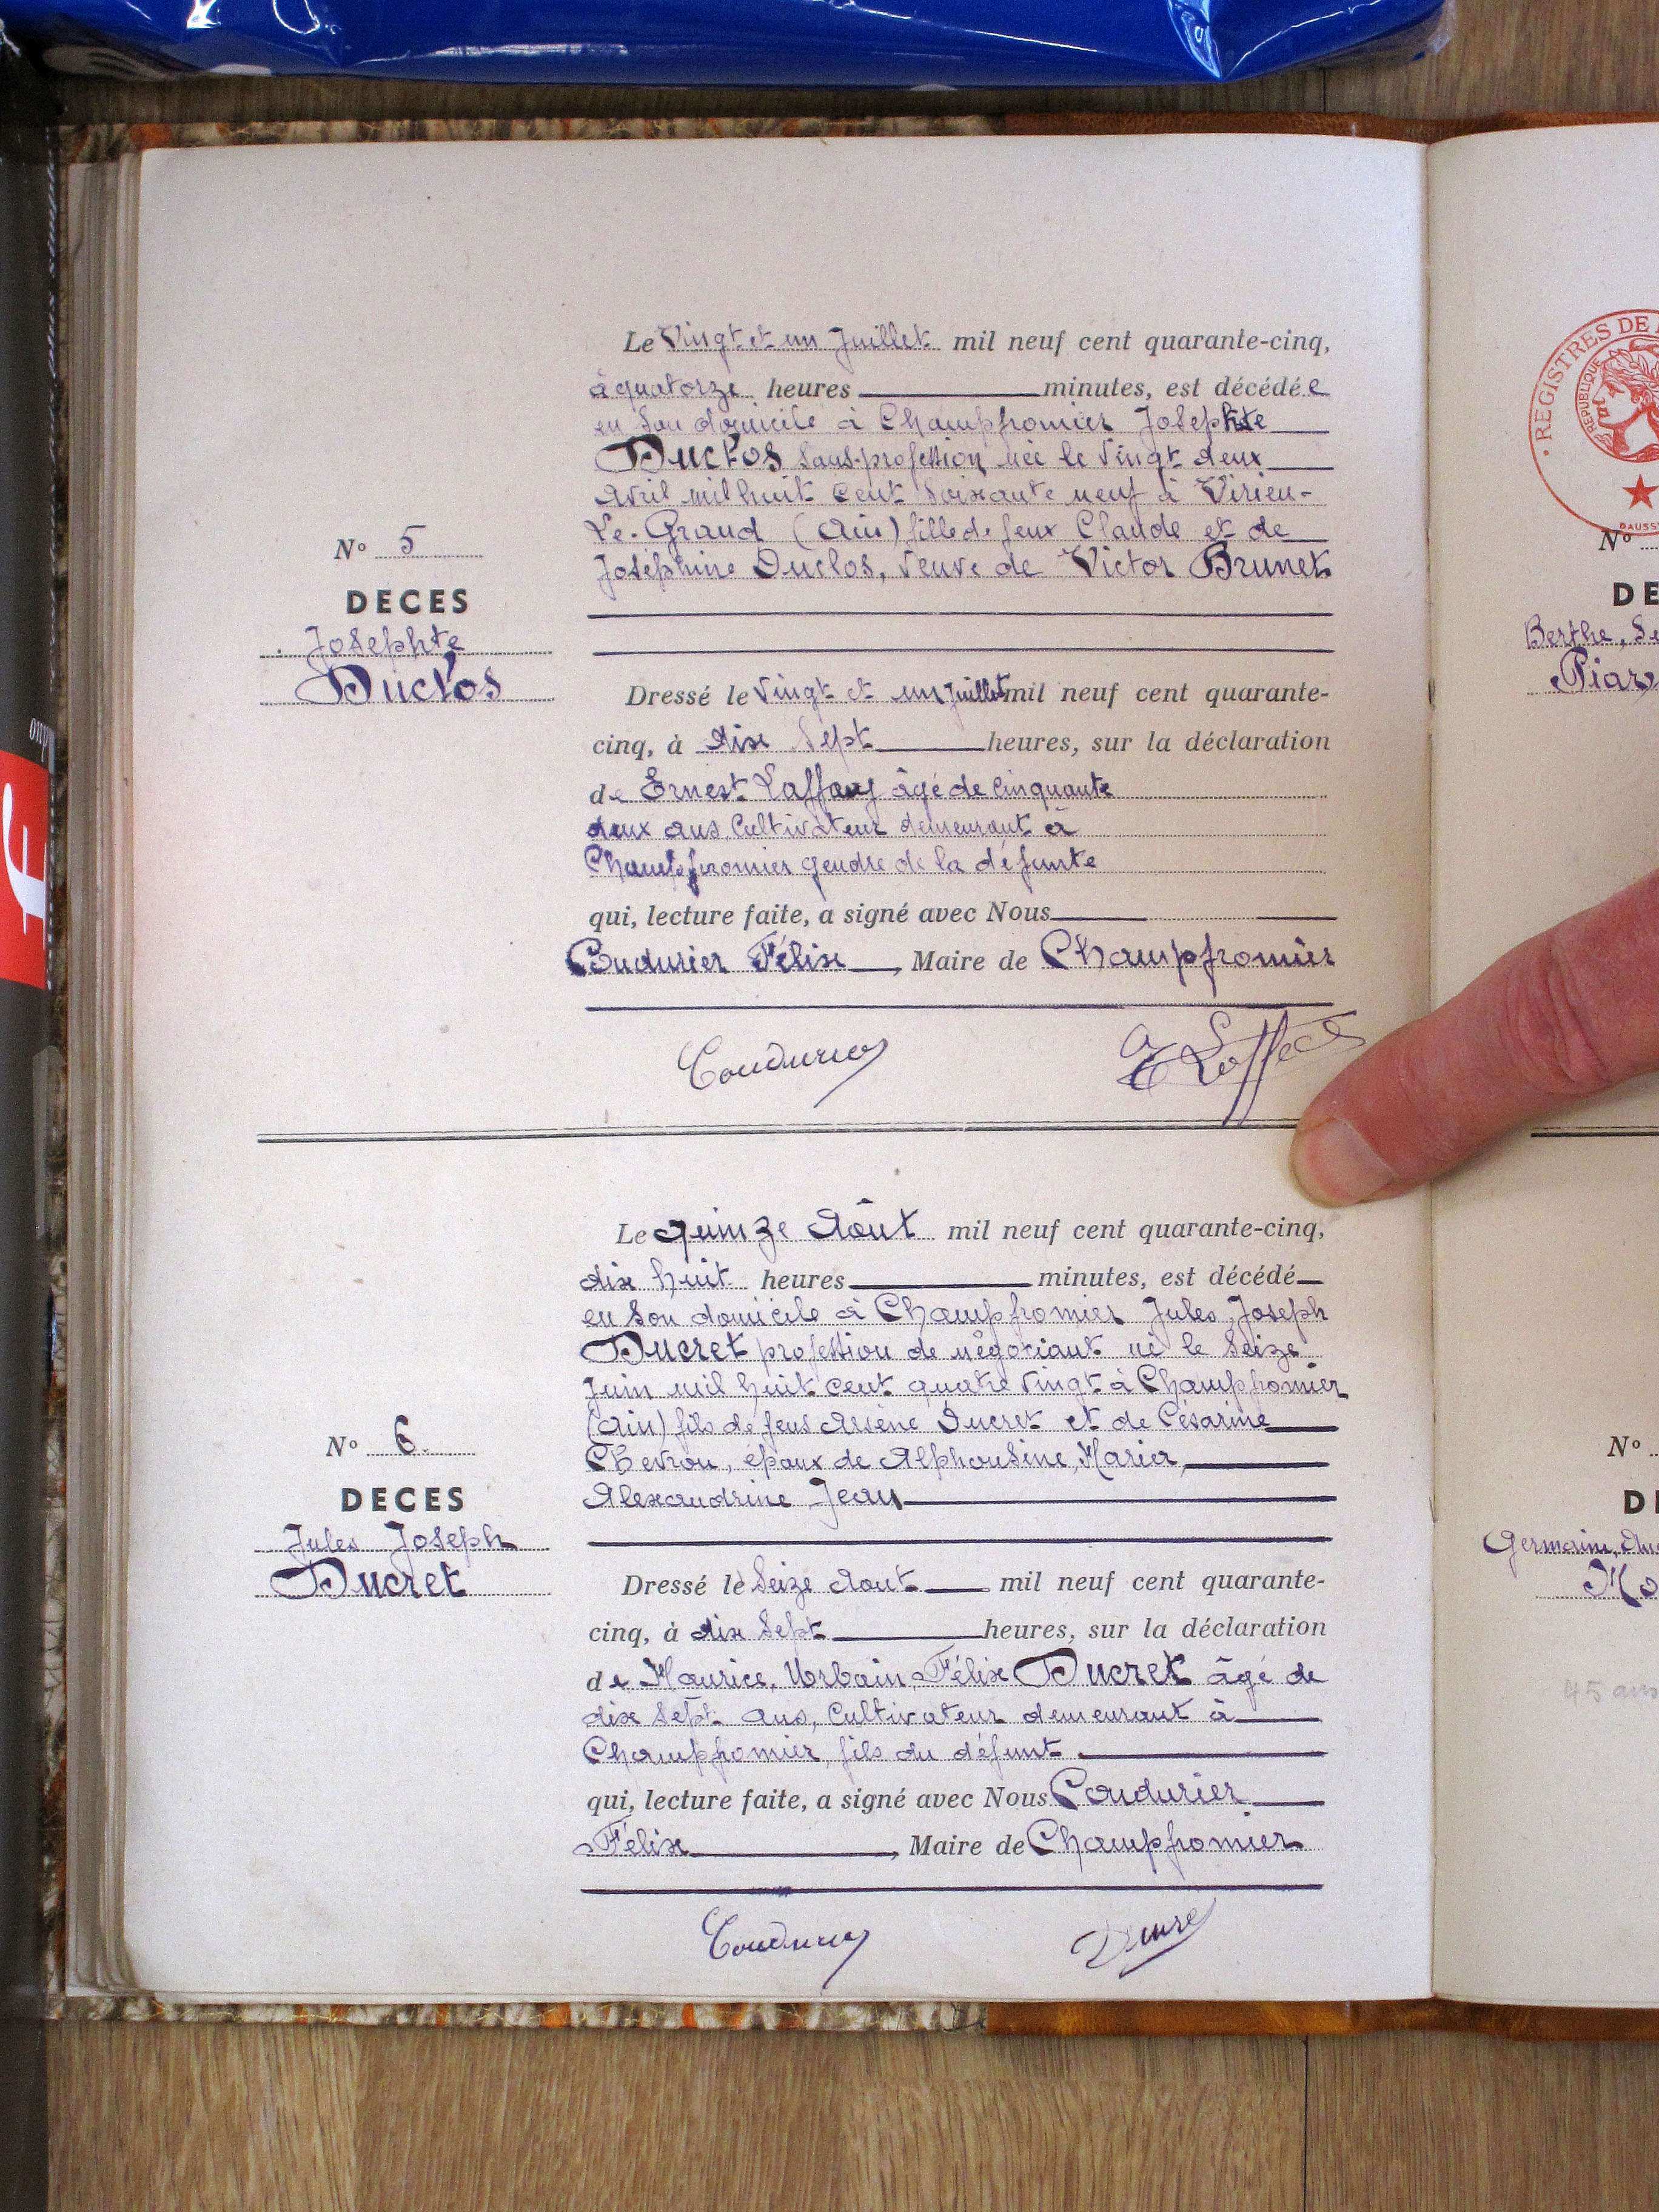 Le Vingt et un Juillet mil neuf cent quarante-cinq,
à quatorze heures minutes, est décédée
en son domicile à Champfromier Josephte
Duclos sans profession née le vingt deux
Avril mil huit cent soixante neuf à Virieu-
Le-Grand (Ain) fille de feux Claude et de
Joséphine Duclos, veuve de Victor Brunet
Nº 5
DECES
Josephte
Duclos
Dressé le Vingt et un Juillet mil neuf cent quarante-
cinq, à dix sept heures, sur la déclaration
de Ernest âgé de cinquante
deux ans, Cultivateur demeurant à
Champfromier gendre de la défunte
qui, lecture faite, a signé avec Nous
Coudurier Félix, Maire de Champfromier
Coudurier
Le quinze Août mil neuf cent quarante-cinq,
dix huit heures minutes, est décédé
en son domicile à Champfromier Jules, Joseph
Ducret profession de négociant né le Seize
Juin mil huit cent quatre vingt à Champfromier
(Ain) fils de feus Arsène Ducret et de Césarine
Chevron, époux de Alphonsine, Maria,
Alexandrine Jean
Nº 6
DECES
Jules Joseph
Ducret
Dressé le Seize Aout mil neuf cent quarante-
cinq, à dix Sept heures, sur la déclaration
de Maurice, Urbain, Félix Ducret âgé de
dix sept ans, Cultivateur demeurant à
Champfromier, fils du défunt.
qui, lecture faite, a signé avec Nous Coudurier
Félix, Maire de Champfromier
Coudurier
REGISTRES DE
REPUBLIQUE
Nº
DE
Berthe,
Nº
45 ans